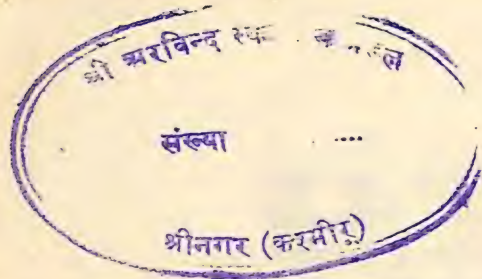 श्री अरविन्द
संख्या ....
श्रीनगर (करमीर)